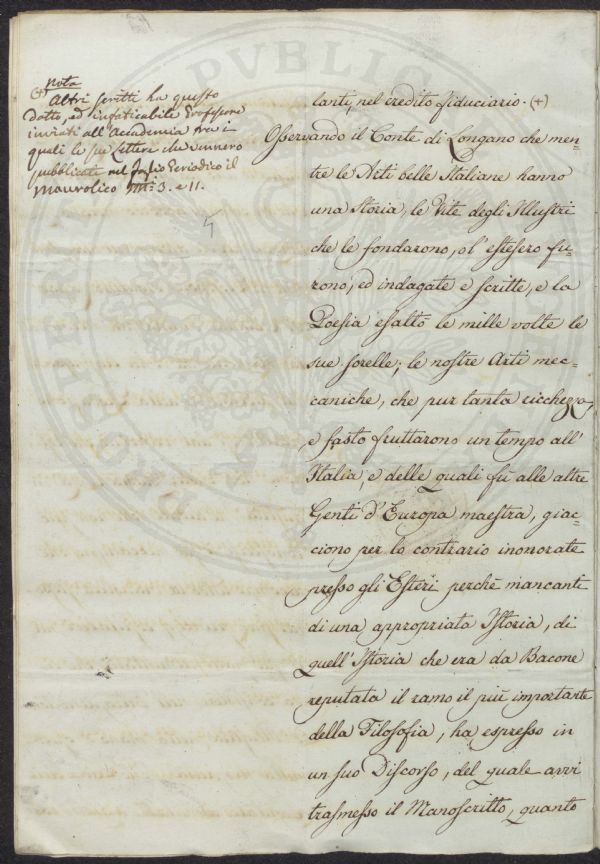 nota
(+) Altri scritti ha questo
dotto, ed infaticabile Professore
inviati all'Accademia fra i
quali le sue Lettere che vennero
pubblicate nel foglio Periodico il
Maurolico N.i 3. e 11.
lanti, nel credito fiduciario. (+)
Osservando il Conte di Longano che men=
tre le Arti belle Italiane hanno
una Storia, le Vite degli Illustri
che le fondarono, o l'estesero fu=
rono, ed indagate e scritte, e la
Poesia esaltò le mille volte le
sue sorelle; le nostre Arti mec=
caniche, che pur tanta ricchezza,
e fasto fruttarono un tempo all'
Italia, e delle quali fu alle altre
Genti d'Europa maestra, giac=
ciono per lo contrario inonorate
presso gli Esteri perchè mancanti
di una appropriata Istoria, di
quell'Istoria che era da Bacone
reputata il ramo il più importante
della Filosofia, ha espresso in
un suo Discorso, del quale avvi
trasmesso il Manoscritto, quanto